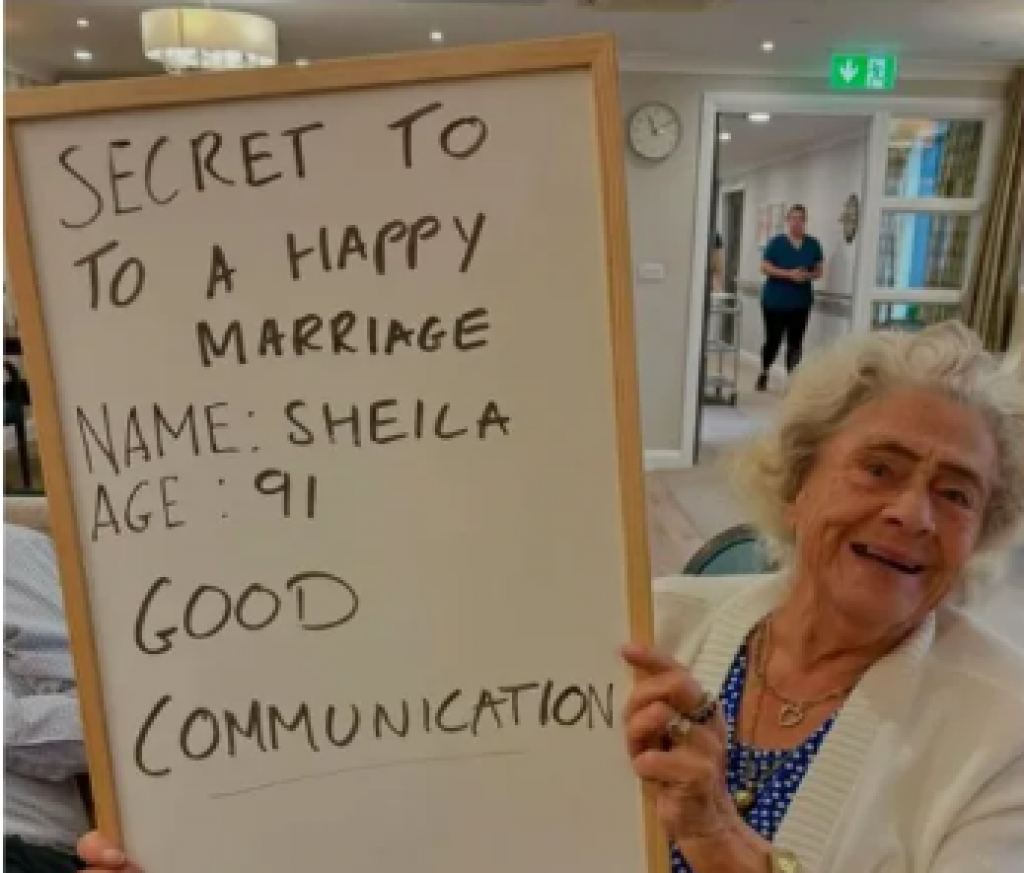 SECRET TO
TO A HAPPY
MARRIAGE
NAME: SHEILA
AGE: 91
GOOD
COMMUNICATION